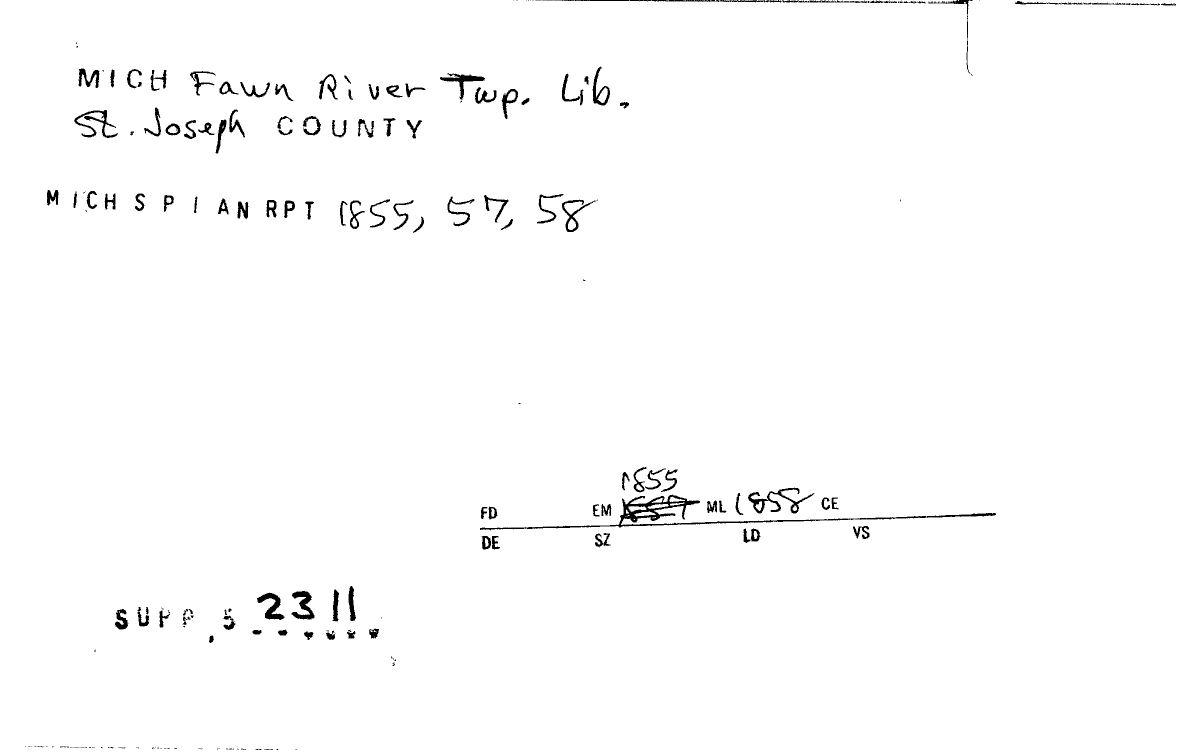 MICH Fawn River Twp. Lib.
St. Joseph COUNTY
MICH S P I AN RPT 1855, 57, 58
1855
FD EM ML 1858 CE
DE SZ LD VS
SUPP. 5 2311